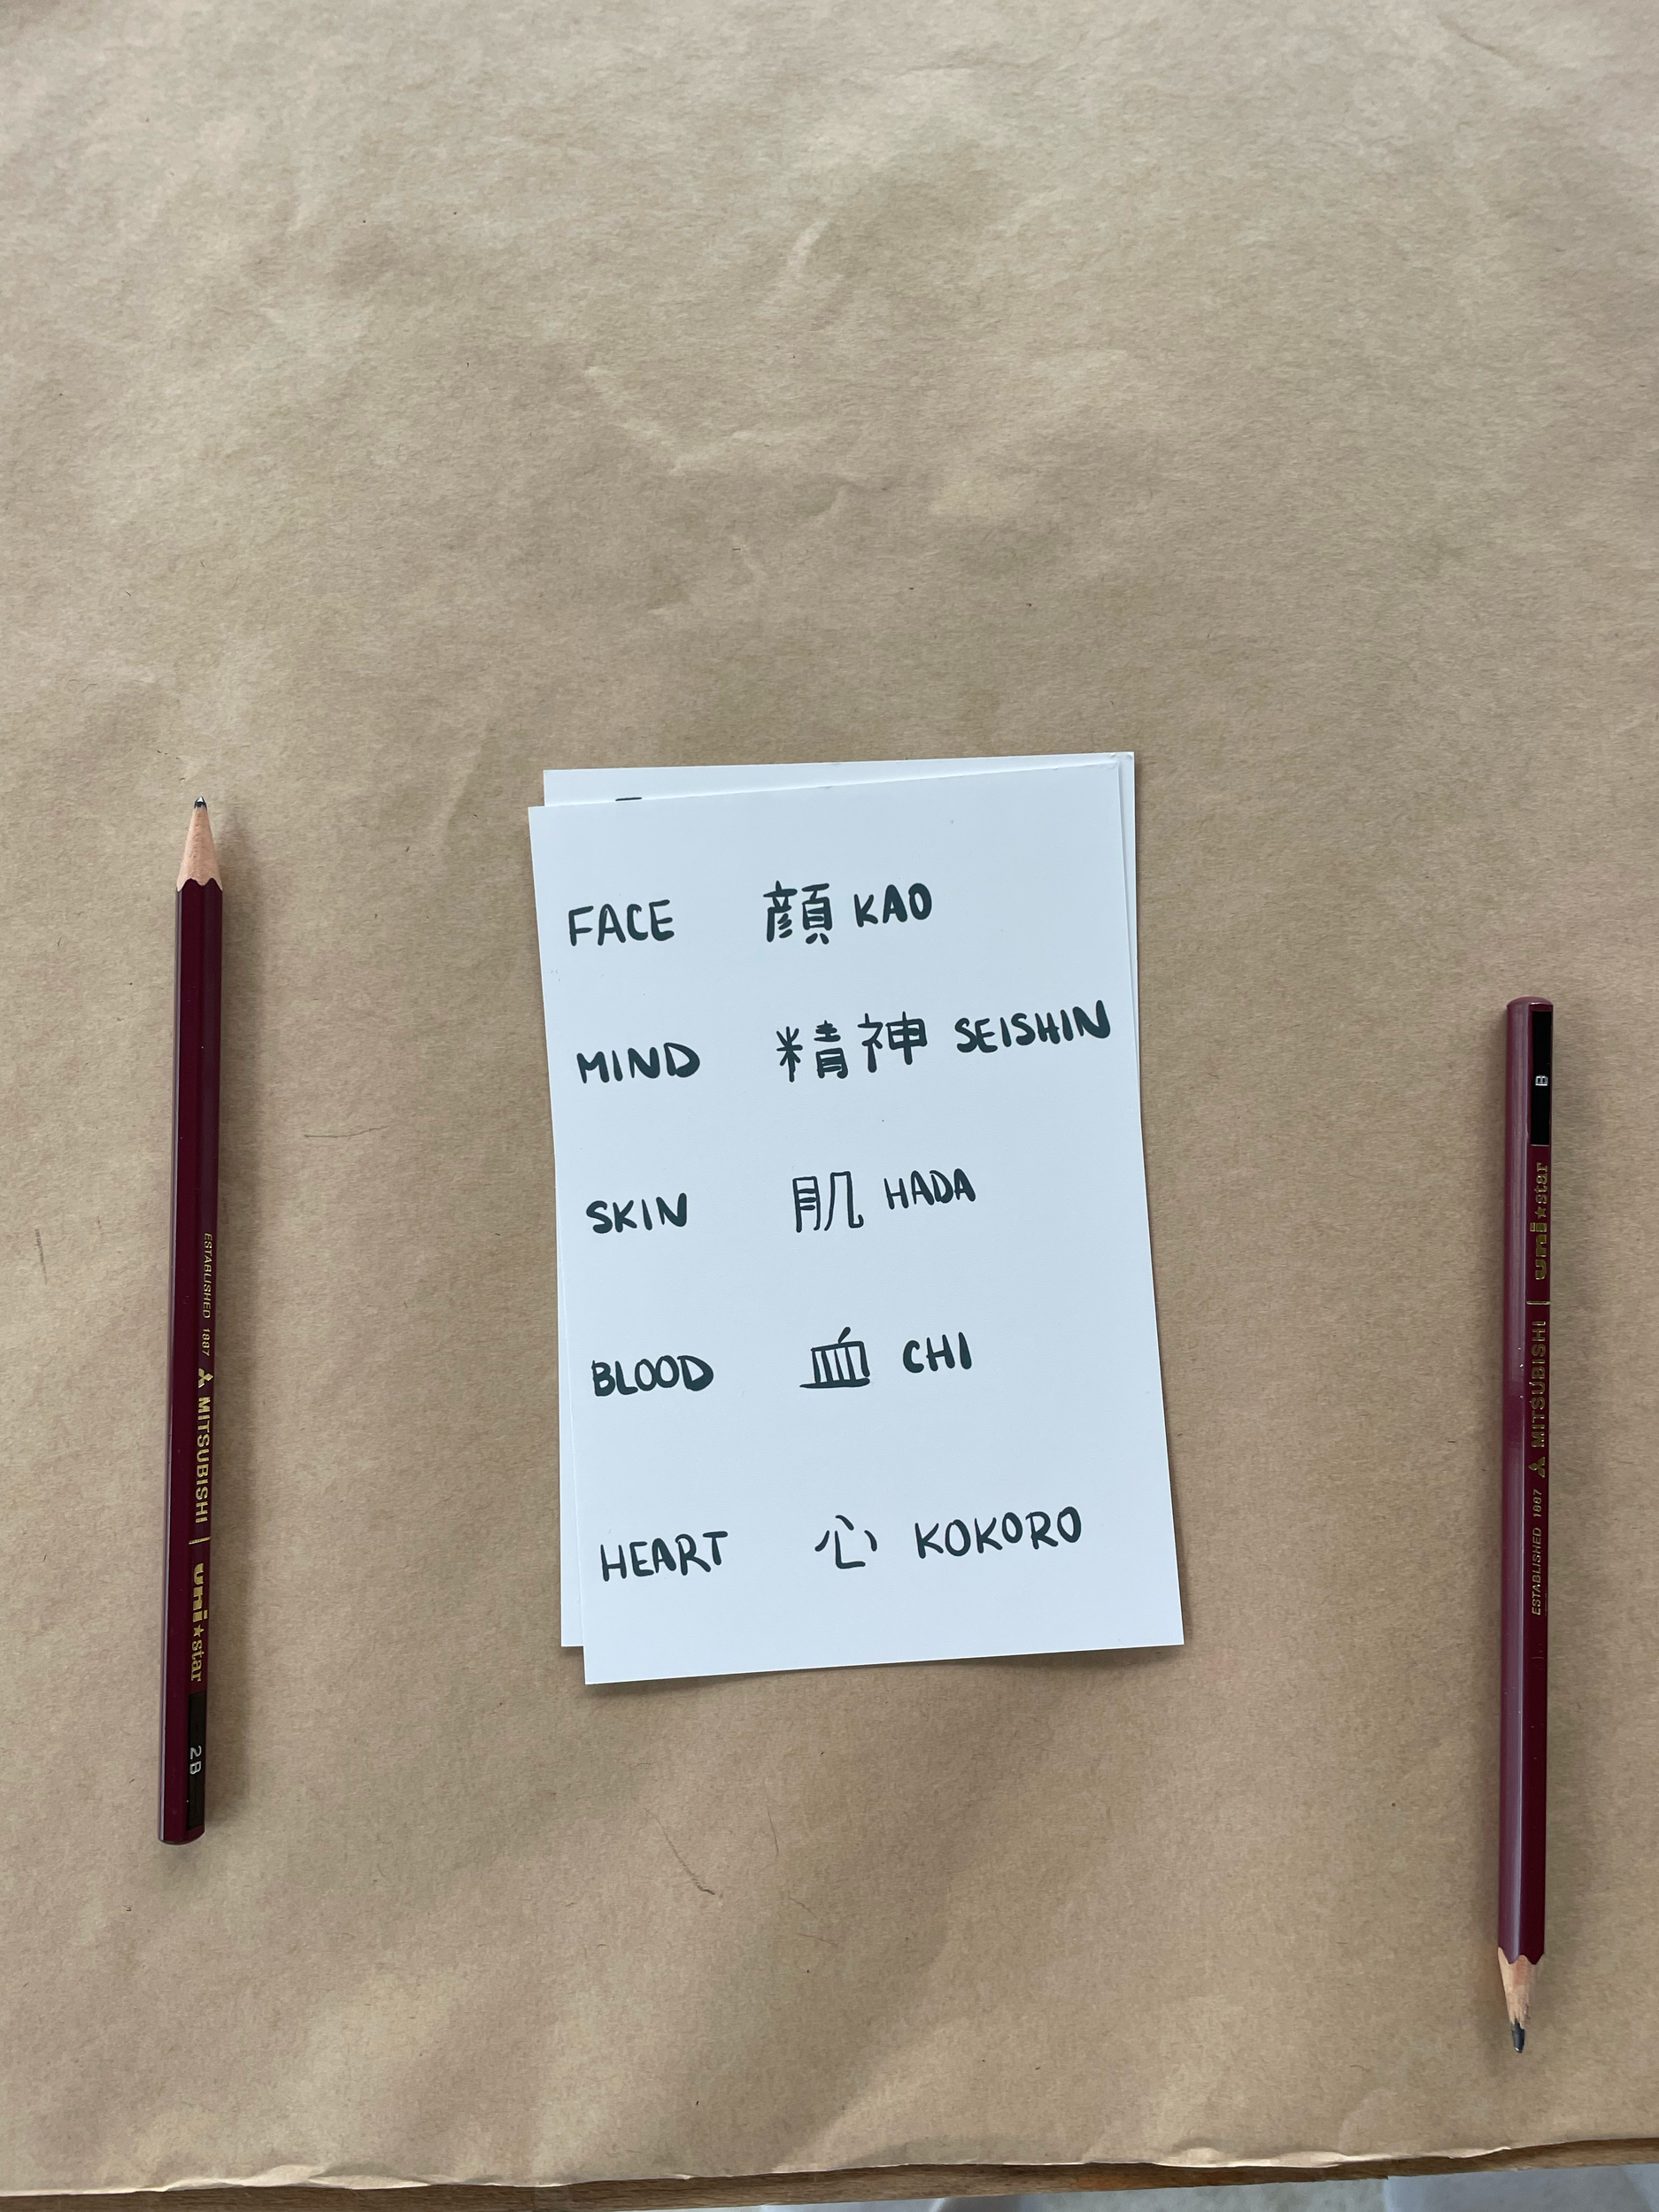 FACE 顔 KAO
MIND 精神 SEISHIN
SKIN 肌 HADA
BLOOD 血 CHI
HEART 心 KOKORO
ESTABLISHED 1887 MITSUBISHI | uni★star 2B
B uni★star | MITSUBISHI ESTABLISHED 1887